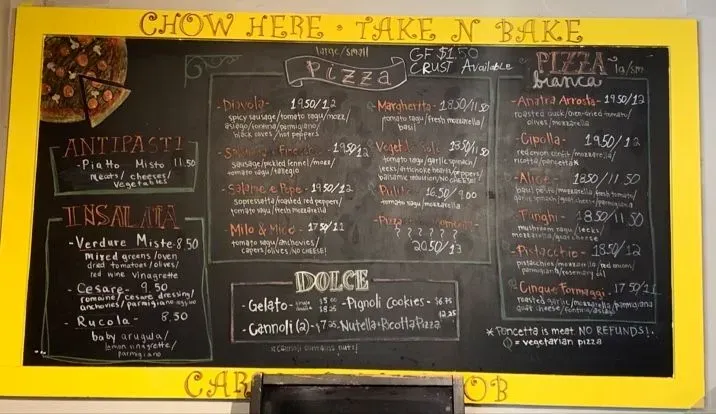 CHOW HERE · TAKE N BAKE
ANTIPASTI
-Piatto Misto 11.50
meats/ cheeses/
vegetables
INSALATA
-Verdure Miste-8.50
Mixed greens/oven
dried tomatoes/olives/
red wine vinagrette
-Cesare- 9.50
romaine/cesare dressing/
anchovies/parmigiano
-Rucola- 8.50
baby arugula/
lemon vinagrette/
parmigiano
large/small
Pizza
GF $1.50
CRUST Available
-Diavola- 19.50/12
spicy sausage/tomato ragu/mozz/
asiago/fontina/parmigiano/
black olives/hot peppers
19.50/12
sausage/pickled fennel/mozz/
tomato ragu/taleggio
-Salame e Pepe-19.50/12
sopressatta/roasted red peppers/
tomato ragu/fresh mozzarella
Milo & Mico- 17.50/11
tomato ragu/anchovies/
capers/olives/NO CHEESE!
-Margherita- 18.50/11.50
tomato ragu/fresh mozzarella/
basil
18.50/11.50
tomato ragu/garlic spinach/
leeks/artichoke hearts/peppers/
balsamic reduction/NO CHEESE!
16.50/9.00
tomato ragu/mozzarella
-Pizza
? ? ? ? ? ?
20.50/13
PIZZA
bianca
lg/sm
-Anatra Arrosta-19.50/12
roasted duck/oven-dried tomato/
olives/mozzarella
-Cipolla- 19.50/12
red onion confit/mozzarella/
ricotta/pancetta*
-Alice- 18.50/11.50
basil pesto/mozzarella/fresh tomato/
garlic spinach/goat cheese/parmigiano
-Funghi- 18.50/11.50
mushroom ragu/leeks/
mozzarella/goat cheese
-Pistacchio- 18.50/12
pistachios/mozzarella/red onion/
parmigiano/rosemary oil
-Cinque Formaggi- 17.50/11
roasted garlic/mozzarella/parmigiano
goat cheese/fontina/asiago
DOLCE
-Gelato-
-Pignoli Cookies- $6.75
-Cannoli (2)-$7.25
-Nutella+Ricotta Pizza 12.25
*cannoli contains nuts!
*Pancetta is meat NO REFUNDS!.
= vegetarian pizza
CAR
OB